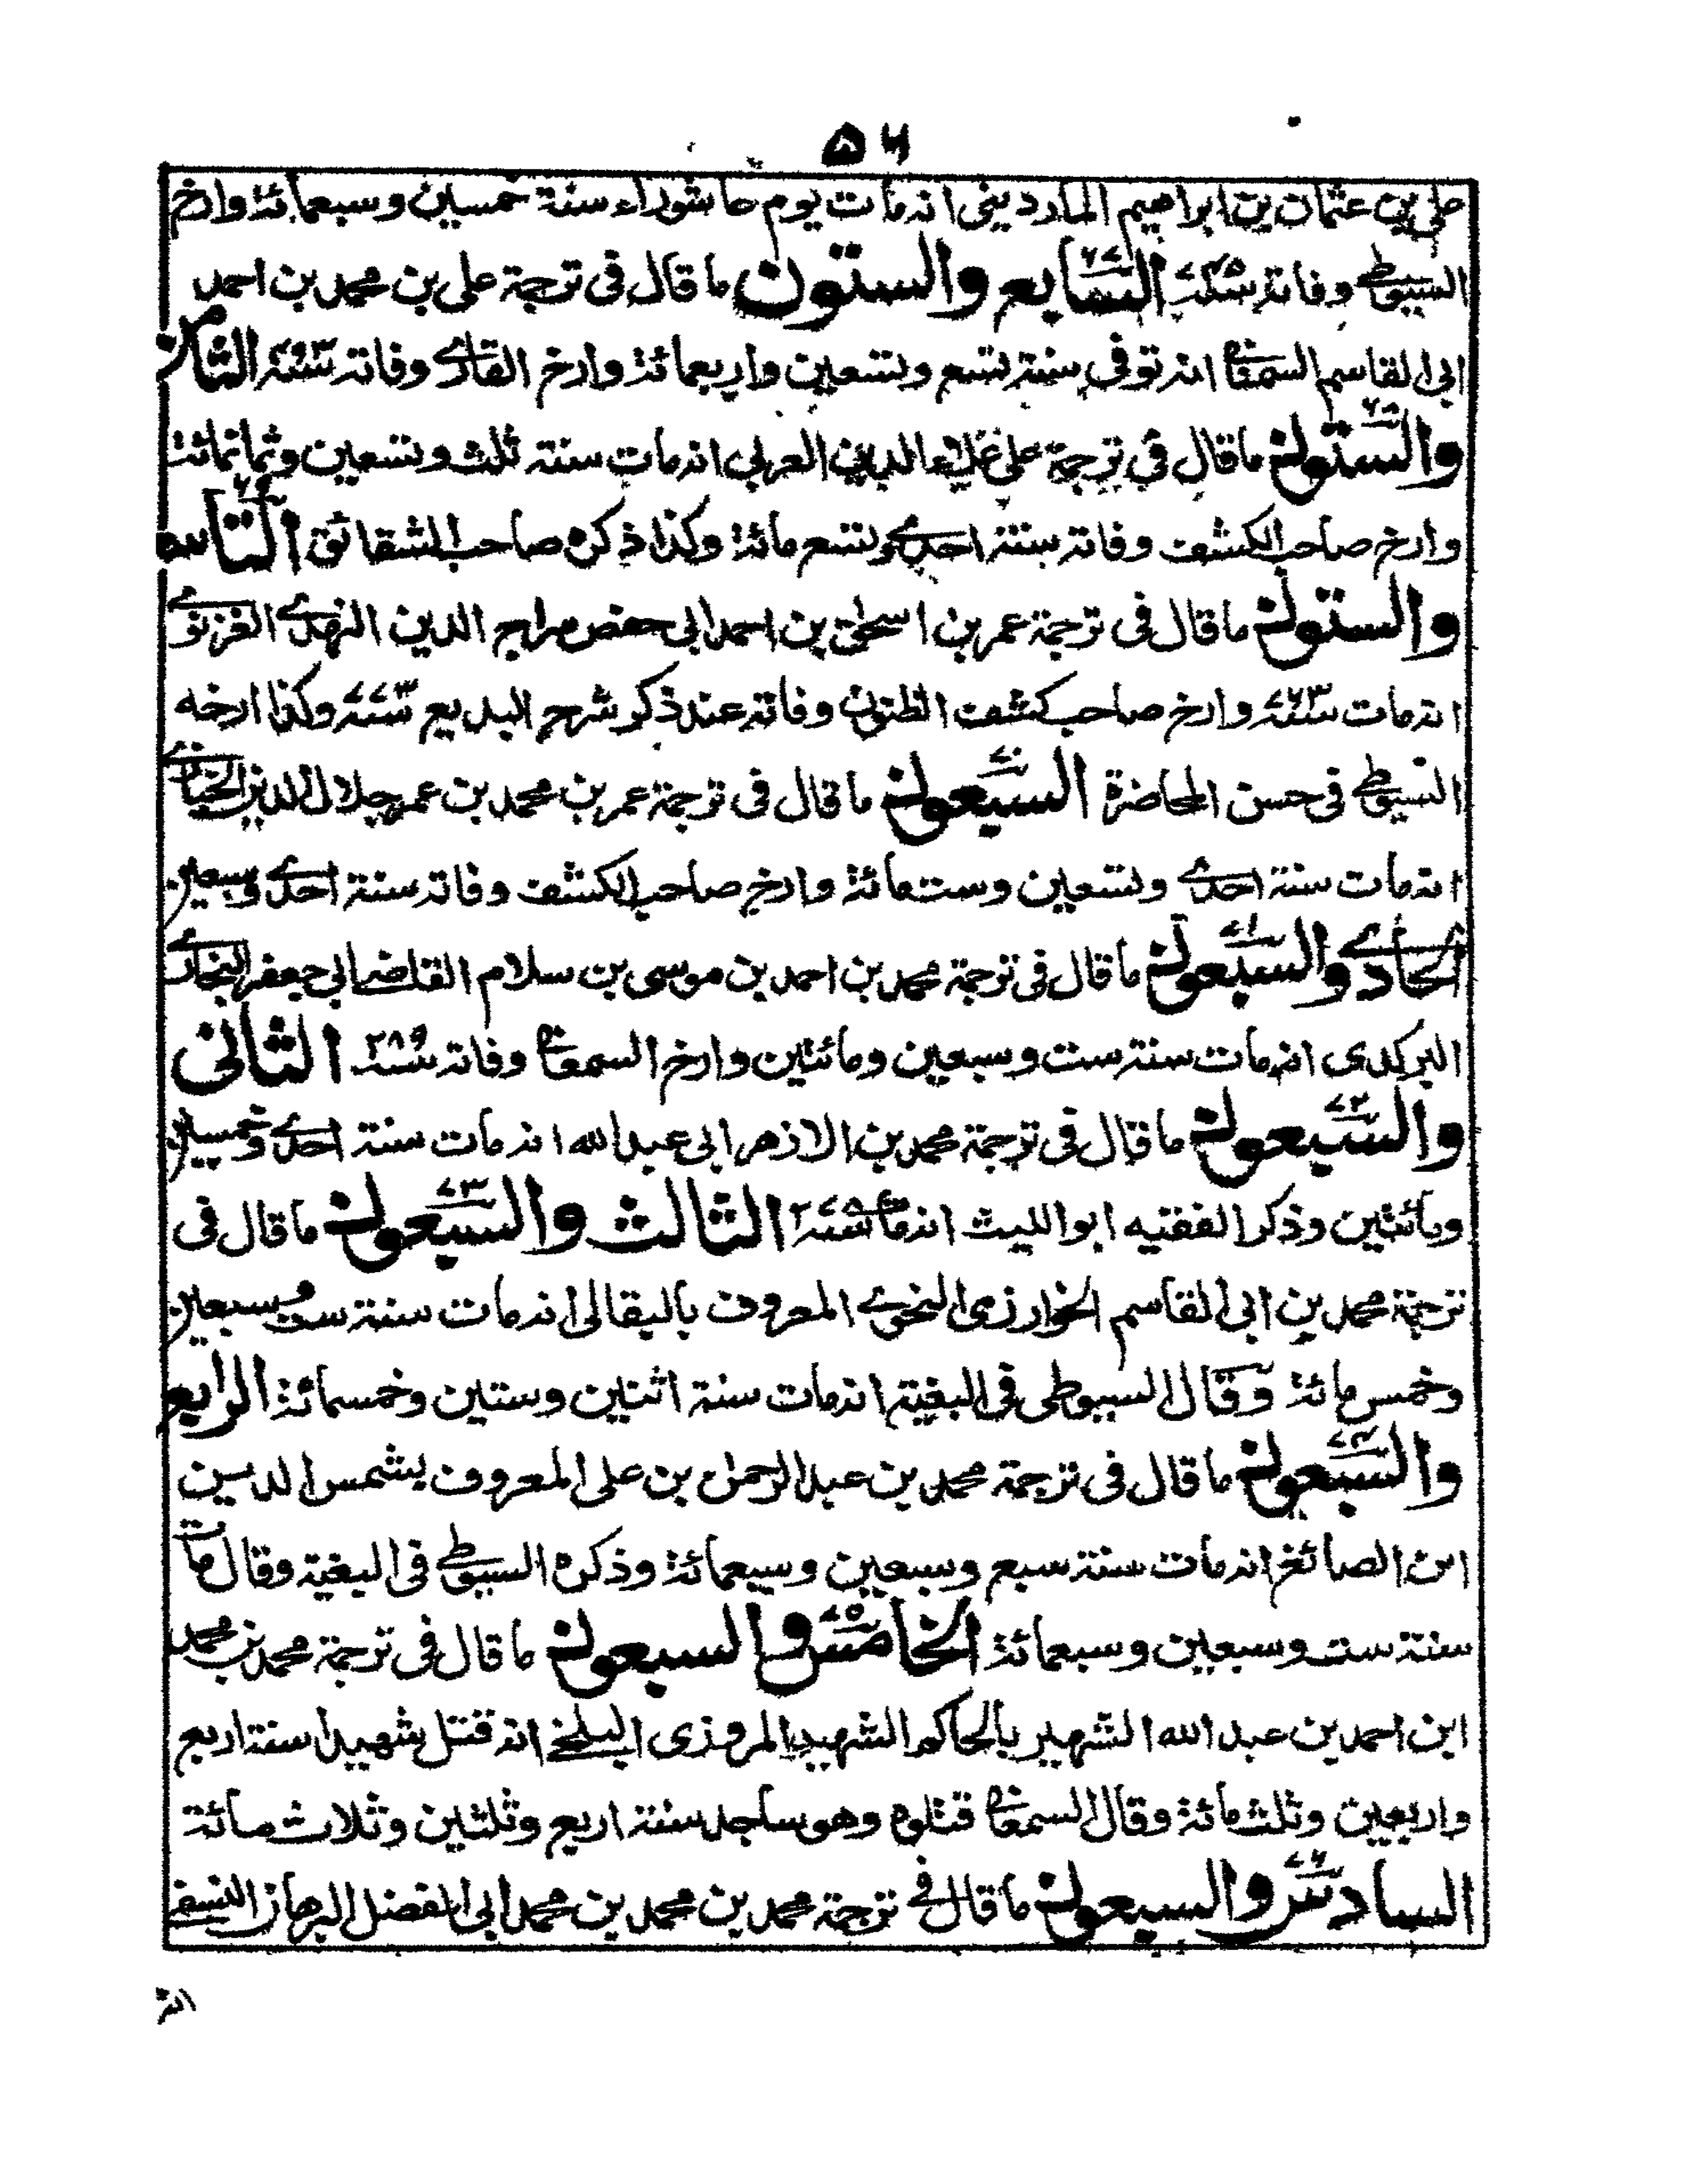 ۵۶
علي بن عثمان بن ابراهيم المارديني انه مات يوم عاشوراء سنة خمسين وسبعمائة وارخ
السيوطي وفاته سنة ۷۴۵ السابع والستون ۶۷ ما قال في ترجمة علي بن محمد بن احمد
ابى القاسم السمناني انه توفي سنة تسع وتسعين واربعمائة وارخ القاري وفاته سنة ۴۹۳ الثامن
والستون ۶۸ ما قال في ترجمة على علاء الدين العربي انه مات سنة ثلث وتسعين وثمانمائة
وارخ صاحب الكشف وفاته سنة احدى وتسع مائة وكذا ذكره صاحب الشقائق التاسع ۶۹
والستون ما قال في ترجمة عمر بن اسحٰق بن احمد ابى حفص سراج الدين الهندي الغزنوي
انه مات سنة ۷۶۳ وارخ صاحب كشف الظنون وفاته عند ذكر شرح البديع سنة ۷۷۳ وكذا ارخه
السيوطي في حسن المحاضرة السبعون ۷۰ ما قال في ترجمة عمر بن محمد بن عمر جلال الدين الخبازي
انه مات سنة احدى وتسعين وستمائة وارخ صاحب الكشف وفاته سنة احدى وسبعين
الحادي والسبعون ۷۱ ما قال في ترجمة محمد بن احمد بن موسى بن سلام القاضي ابى جعفر البخاري
البركدى انه مات سنة ست وسبعين ومائتين وارخ السمعاني وفاته سنة ۲۸۹ الثاني
والسبعون ۷۲ ما قال في ترجمة محمد بن الازهر ابى عبد الله انه مات سنة احدى وخمسين
ومائتين وذكر الفقيه ابو الليث انه مات سنة ۲۷۸ الثالث والسبعون ۷۳ ما قال في
ترجمة محمد بن ابى القاسم الخوارزمى النحوي المعروف بالبقالى انه مات سنة ست وسبعين
وخمس مائة وقال السيوطى في البغية انه مات سنة اثنين وستين وخمسمائة الرابع
والسبعون ۷۴ ما قال في ترجمة محمد بن عبد الرحمن بن على المعروف بشمس الدين
ابن الصائغ انه مات سنة سبع وسبعين وسبعمائة وذكره السيوطي في البغية وقال مات
سنة ست وسبعين وسبعمائة الخامس والسبعون ۷۵ ما قال في ترجمة محمد بن محمد
ابن احمد بن عبد الله الشهير بالحاكم الشهيد المروزى البلخي انه قتل شهيدا سنة اربع
واربعين وثلث مائة وقال السمعاني قتلوه وهو ساجد سنة اربع وثلثين وثلاث مائة
السادس والسبعون ۷۶ ما قال في ترجمة محمد بن محمد بن محمد ابى الفضل البرهان النسفي
انه